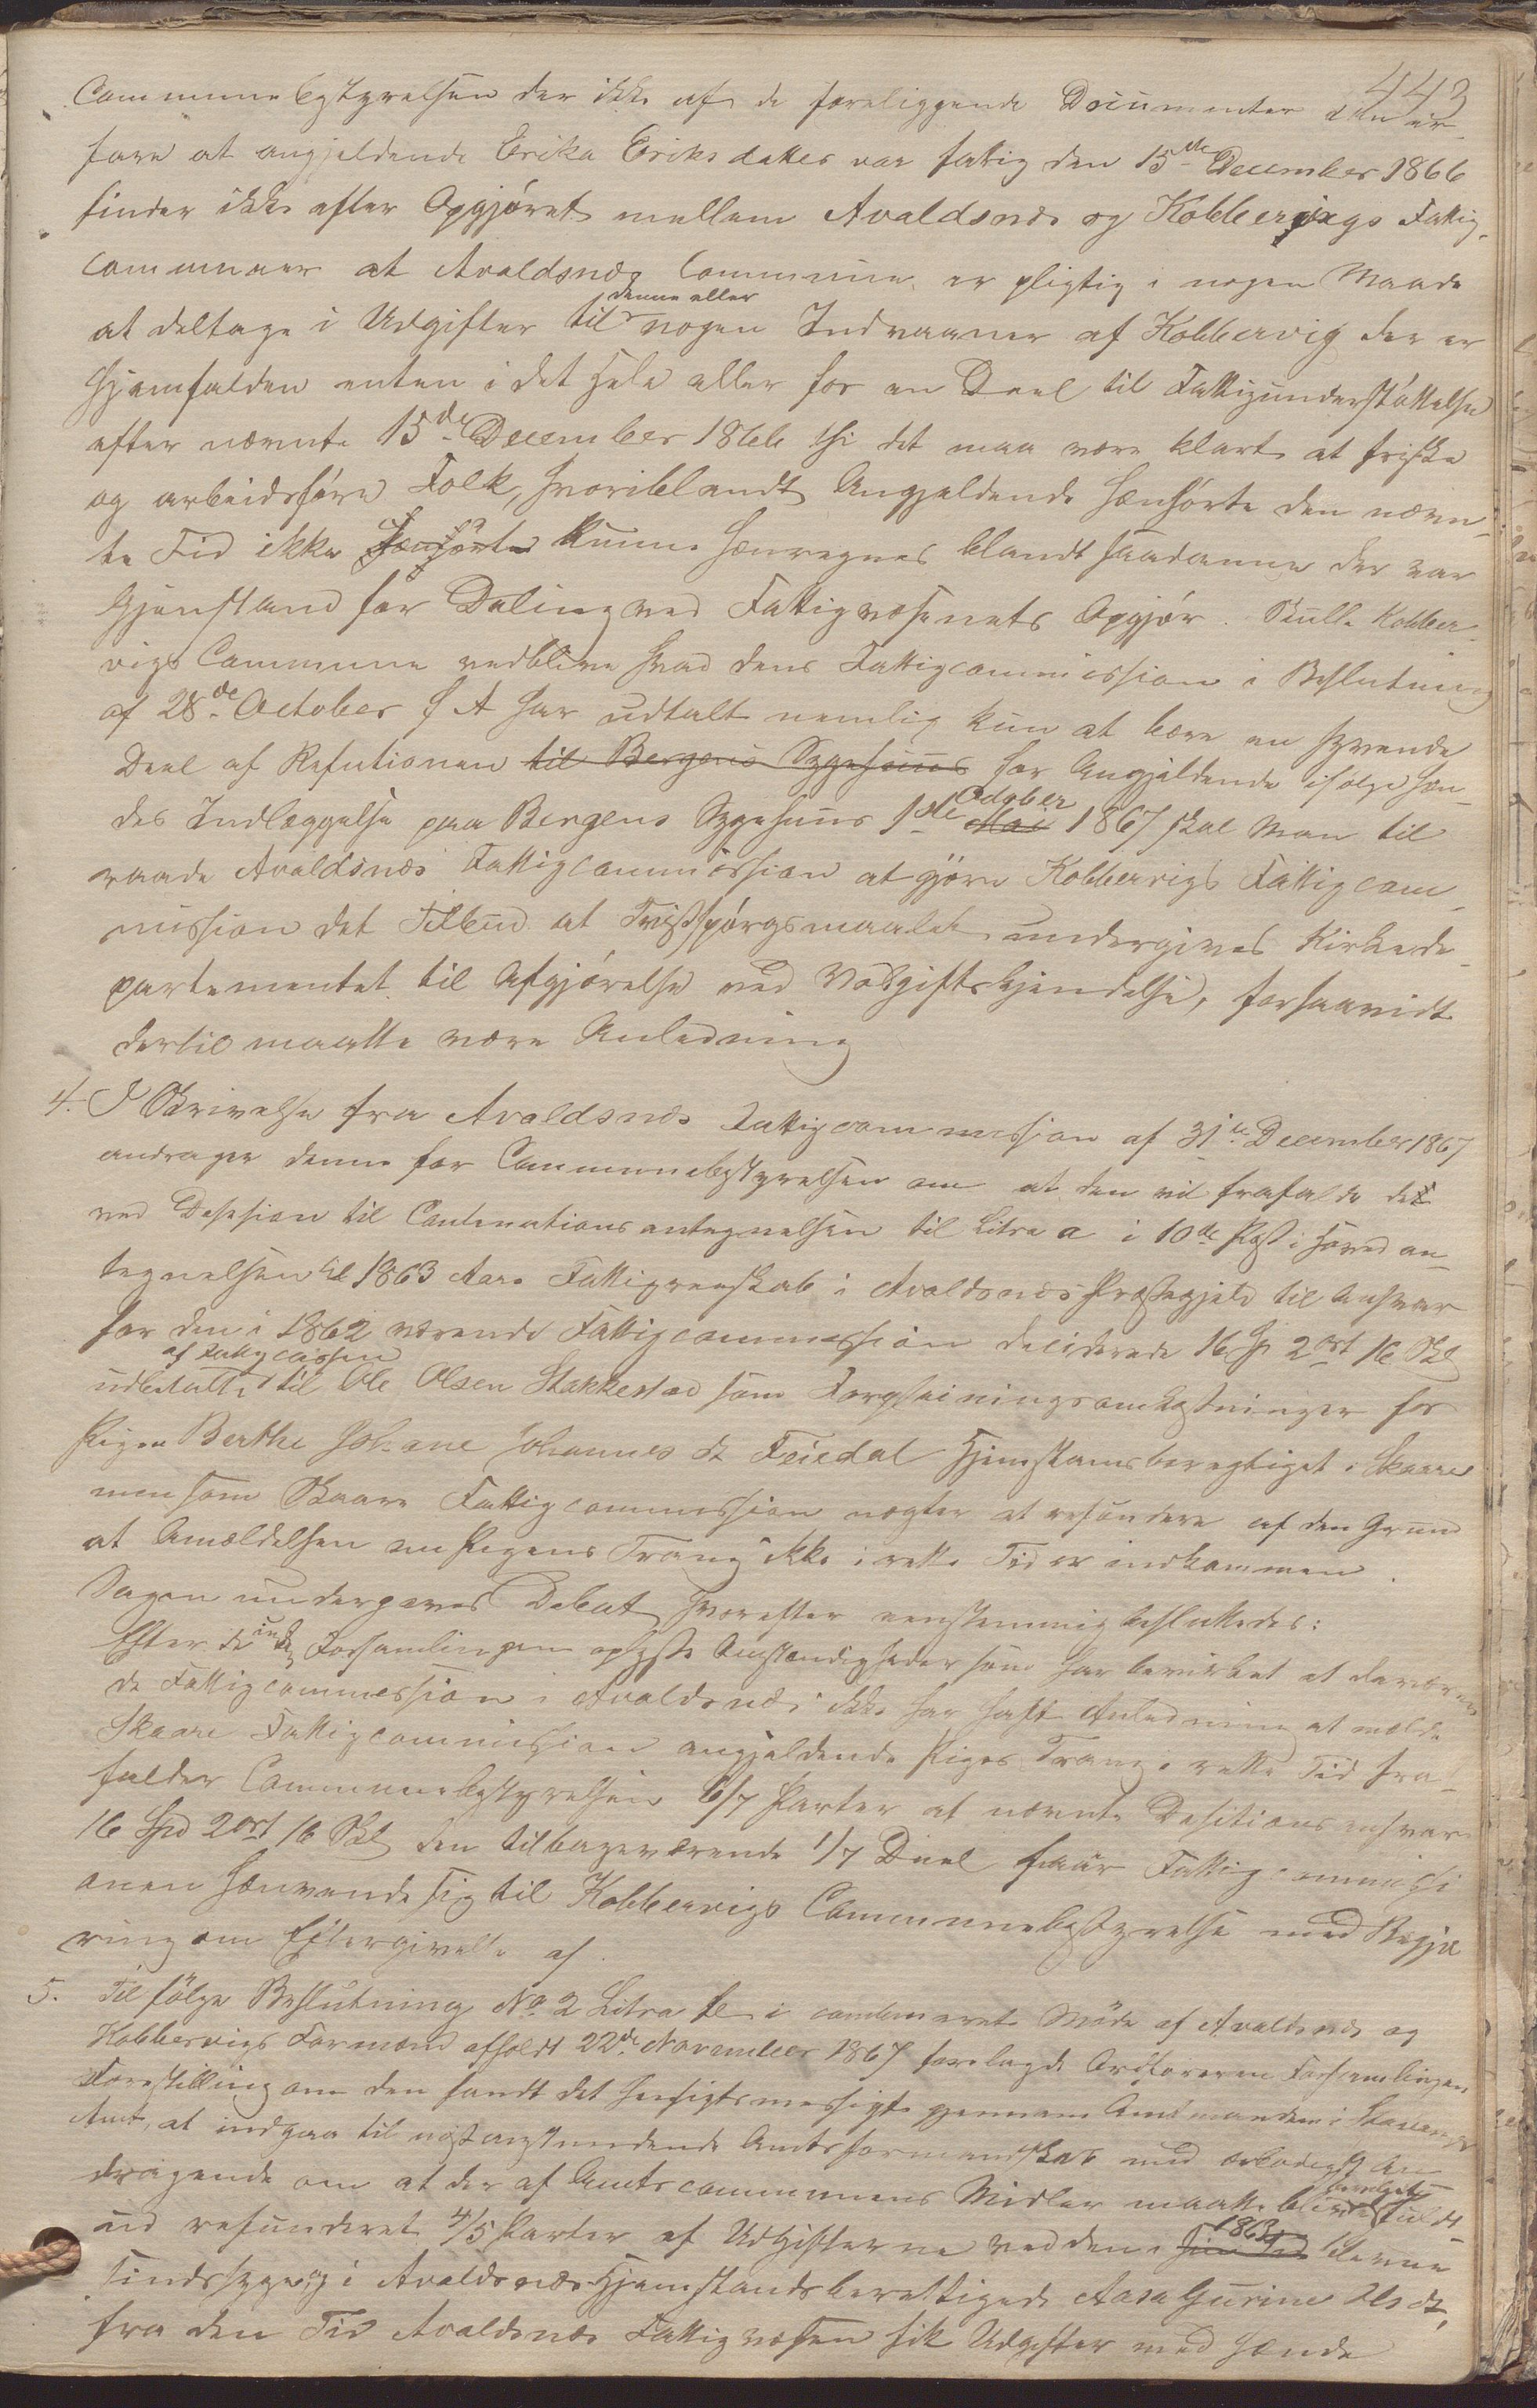 443
Communebestyrelsen der ikke af de foreliggende Documenter kan er-
fare at angjeldende Erika Eriksdatter var fattig den 15de December 1866
finder ikke efter Opgjöret mellem Avaldsnæs og Kobbervigs Fattig-
communer at Avaldsnæs Commune er pligtig i nogen Maade
at deltage i Udgifter til denne eller nogen Indvaaner af Kobbervig der er
hjemfalden enten i det Hele eller for en Deel til Fattigunderstöttelse
efter nævnte 15de December 1866 thi det maa være klart at friske
og arbeidsföre Folk, hvoriblandt Angjeldende henhörte den nævn-
te Tid ikke henhörte kunne henregnes blandt saadanne der var
Gjenstand for Deling ved Fattigvæsenets Opgjör. Skulle Kobber-
vigs Commune vedblive hvad dens Fattigcommission i Beslutning
af 28de October f A har udtalt nemlig kun at bære en syvende
Deel af Refutionen til Bergens Sygehuus for Angjeldende ifölge hen-
des Indlæggelse paa Bergens Sygehuus 1ste Mai October 1867 skal man til
raade Avaldsnæs Fattigcommission at gjöre Kobbervigs Fattigcom-
mission det Tilbud at Tvistspörgsmaalet undergives Kirkede-
partementet til Afgjörelse ved Voldgiftskjendelse, forsaavidt
dertil maatte være Anledning
4. I Skrivelse fra Avaldsnæs Fattigcommission af 31te December 1867
andrager denne for Communebestyrelsen om at den vil frafalde det
ved Desision til Continuationsantegnelsen til Litra a i 10de Post i Hovedan-
tegnelsen til 1863 Aars Fattigregnskab i Avaldsnæs Præstegjeld til Ansvar
for den i 1862 værende Fattigcommission deciderede 16 Sp 2 ort 16 Skl
udbetalte af Fattigcassen til Ole Olsen Stakkestad som Forpleiningsomkostninger for
Pigen Berthe Johane Johannes dt Feiedal Hjemstavnsberegtiget i Skaare
men som Skaare Fattigcommission nægter at refundere af den Grund
at Anmeldelsen om Pigens Trang ikke i rette Tid er indkommen.
Sagen undergaves Debat hvorefter eenstemmig besluttedes:
Efter de in de Forsamlingen oplyste Omstændigheder som har bevirket at daværen
de Fattigcommission i Avaldsnæs ikke har havt Anledning at melde
Skaare Fattigcommission angjeldende Piges Trang i rette Tid fra-
falder Communebestyrelsen 6/7 Parter af nævnte Desitions ansvar
16 Spd 2 ort 16 Skl den tilbageværende 1/7 Deel faar Fattigcommissi
onen henvende sig til Kobbervigs Communebestyrelse med Begjæ
ring om Eftergivelse af.
5. Tilfölge Beslutning No 2 Litra i combineret Möde af Avaldsnæs og
Kobbervigs Formænd afholdt 22de November 1867 forelagde Ordföreren Forsamlingen
Forestilling om den fandt det hensigtsmæssigt gjennem Amtmanden i Stavanger
Amt, at indgaa til næstanstundende Amtsformandskab med ærbödigst An
dragende om at der af Amtscommunens Midler maatte blive bevilget
ud refunderet 4/5 Parter af Udgifterne ved den i 1863
Sindssyge og i Avaldsnæs Hjemstandsberettigede Aasa Gurine Ols dt,
fra den Tid Avaldsnæs Fattigvæsen fik Udgifter med hende